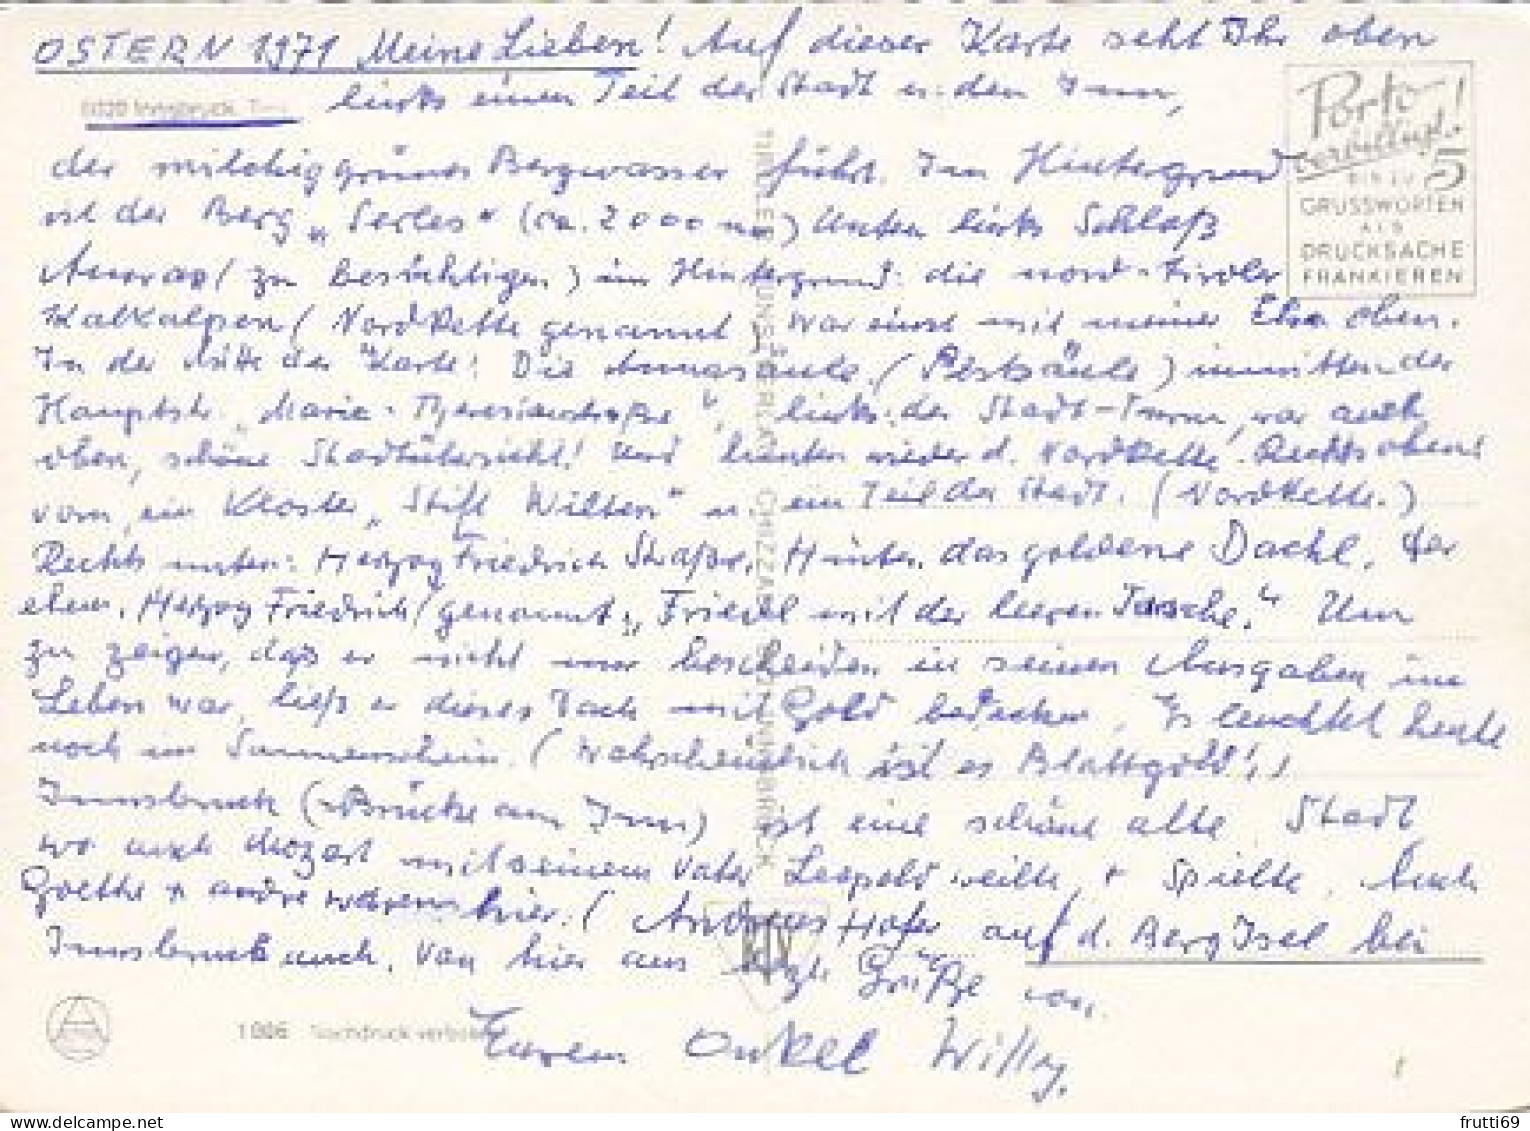 OSTERN 1971 Meine Lieben! Auf dieser Karte seht Ihr oben
links einen Teil der Stadt u. den Inn,
6020 Innsbruck, Tirol
der milchiggrünes Bergwasser führt. Im Hintergrund
ist der Berg „Serles“ (ca. 2000 m.) Unten links Schloß
Amras (zu besichtigen) im Hintergrund: die nord-tiroler
Kalkalpen (Nordkette genannt, war einst mit meiner Elsa oben.
In der Mitte der Karte: Die Annasäule, (Pestsäule) inmitten der
Hauptstr. „Maria-Theresienstraße“, links: der Stadt-Turm, war auch
oben, schöne Stadtübersicht! Und hinten wieder d. Nordkette. Rechts oben:
vorn, ein Kloster, „Stift Wilten“ u. ein Teil der Stadt. (Nordkette.)
Rechts unten: Herzog Friedrich Straße, Hinten das goldene Dachl. Der
ehem. Herzog Friedrich (genannt: „Friedl mit der leeren Tasche.“ Um
zu zeigen, daß er nicht nur bescheiden in seinen Ausgaben im
Leben war, ließ er dieses Dach mit Gold bedecken. Es leuchtet heute
noch im Sonnenschein. (Wahrscheinlich ist es Blattgold!)
Innsbruck (Brücke am Inn) ist eine schöne alte Stadt
wo auch Mozart mit seinem Vater Leopold weilte, + spielte. Auch
Goethe + andre waren hier. (Andreas Hofer auf d. Berg Isel bei
Innsbruck auch. Von hier aus herzl. Grüße von
Eurem Onkel Willy.
Porto
verbilligt!
BIS ZU 5
GRUSSWORTEN
ALS
DRUCKSACHE
FRANKIEREN
TIROLER KUNSTVERLAG CHIZZALI INNSBRUCK
1006 Nachdruck verboten
frutti69